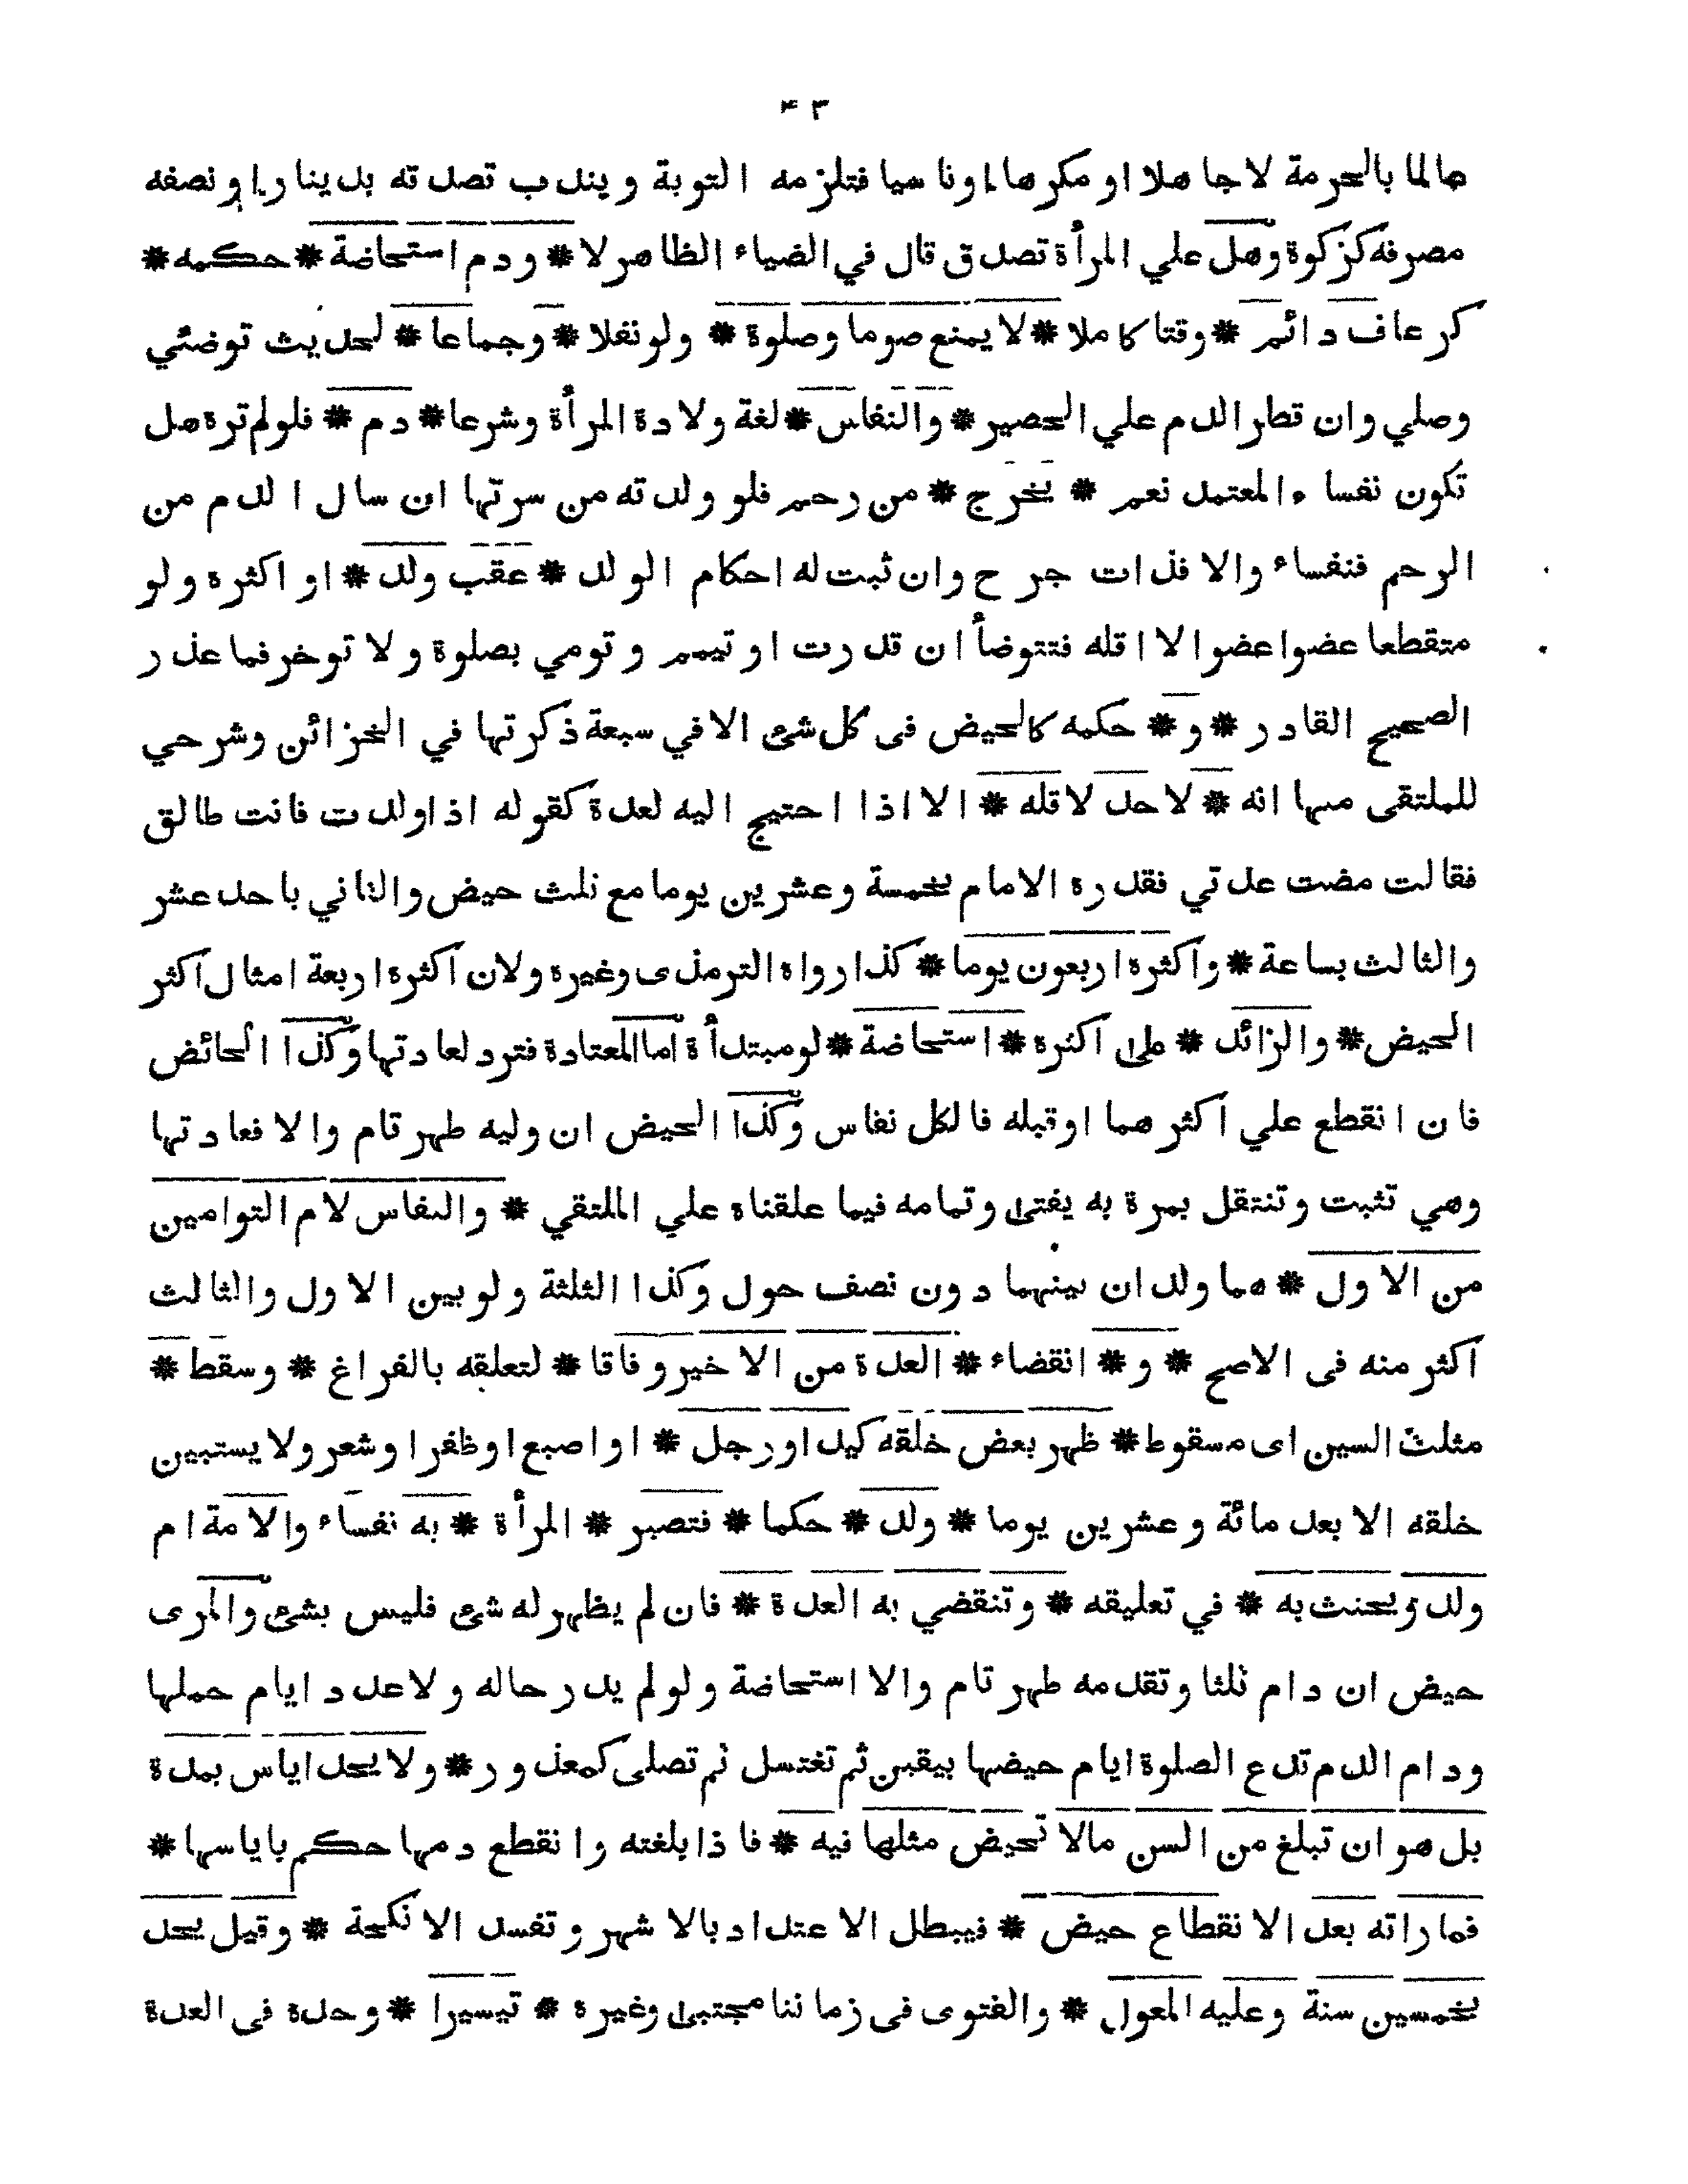 ۴۳
عالما بالحرمة لا جاهلا او مكرها او ناسيا فتلزمه التوبة ويندب تصدقه بدينار او نصفه
مصرفه كزكوة وهل علي المرأة تصدق قال في الضياء الظاهر لا * ودم استحاضة * حكمه *
كرعاف دائم * وقتا كاملا * لا يمنع صوما وصلوة * ولو نفلا * وجماعا * لحديث توضئي
وصلي وان قطر الدم علي الحصير * والنفاس * لغة ولادة المرأة وشرعا * دم * فلو لم تره هل
تكون نفساء المعتمد نعم * يخرج * من رحم فلو ولدته من سرتها ان سال الدم من
الرحم فنفساء والا فذات جرح وان ثبت له احكام الولد * عقب ولد * او اكثره ولو
متقطعا عضوا عضوا لا اقله فتتوضأ ان قدرت او تيمم وتومي بصلوة ولا توخر فما عذر
الصحيح القادر * و * حكمه كالحيض فى كل شئ الا في سبعة ذكرتها في الخزائن وشرحي
للملتقى منها انه * لا حد لاقله * الا اذا احتيج اليه لعدة كقوله اذا ولدت فانت طالق
فقالت مضت عدتي فقدره الامام بخمسة وعشرين يوما مع ثلث حيض والثاني باحد عشر
والثالث بساعة * واكثره اربعون يوما * كذا رواه الترمذى وغيره ولان اكثره اربعة امثال اكثر
الحيض * والزائد * على اكثره * استحاضة * لو مبتدأة اما المعتادة فترد لعادتها وكذا الحائض
فان انقطع علي اكثرهما او قبله فالكل نفاس وكذا الحيض ان وليه طهر تام والا فعادتها
وهي تثبت وتنتقل بمرة به يفتى وتمامه فيما علقناه علي الملتقي * والنفاس لام التوامين
من الاول * هما ولدان بينهما دون نصف حول وكذا الثلثة ولو بين الاول والثالث
اكثر منه فى الاصح * و * انقضاء * العدة من الاخير وفاقا * لتعلقه بالفراغ * وسقط *
مثلث السين اى مسقوط * ظهر بعض خلقه كيد او رجل * او اصبع او ظفر او شعر ولا يستبين
خلقه الا بعد مائة وعشرين يوما * ولد * حكما * فتصير * المرأة * به نفساء والامة ام
ولد ويحنث به * في تعليقه * وتنقضي به العدة * فان لم يظهر له شئ فليس بشئ والمرى
حيض ان دام ثلثا وتقدمه طهر تام والا استحاضة ولو لم يدر حاله ولا عدد ايام حملها
ودام الدم تدع الصلوة ايام حيضها بيقين ثم تغتسل ثم تصلى كمعذور * ولا يحد اياس بمدة
بل هو ان تبلغ من السن مالا تحيض مثلها فيه * فاذا بلغته وانقطع دمها حكم باياسها *
فما راته بعد الانقطاع حيض * فيبطل الاعتداد بالاشهر وتفسد الانكحة * وقيل يحد
بخمسين سنة وعليه المعول * والفتوى فى زماننا مجتبى وغيره * تيسيرا * وحده فى العدة